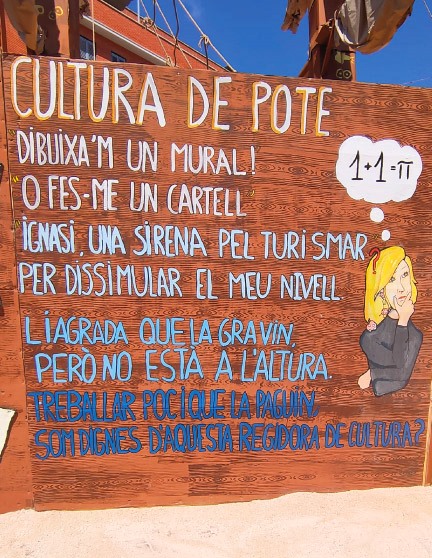 CULTURA DE POTE
"DIBUIXA'M UN MURAL!
"O FES-ME UN CARTELL"
"IGNASI, UNA SIRENA PEL TURISMAR
PER DISSIMULAR EL MEU NIVELL
LI AGRADA QUE LA GRAVIN,
PERÒ NO ESTÀ A L'ALTURA.
TREBALLAR POC I QUE LA PAGUIN,
SOM DIGNES D'AQUESTA REGIDORA DE CULTURA?
1+1=π
?